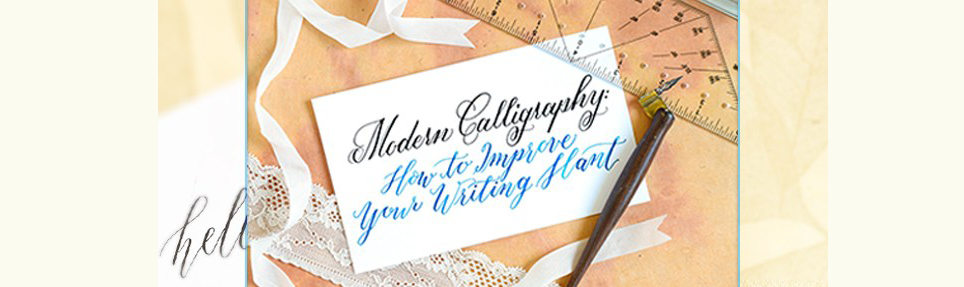 Modern Calligraphy:
How to Improve
Your Writing Slant